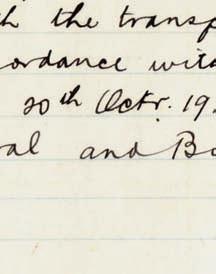 th the transp
ordance with
20th Octr. 19
ral and Bo